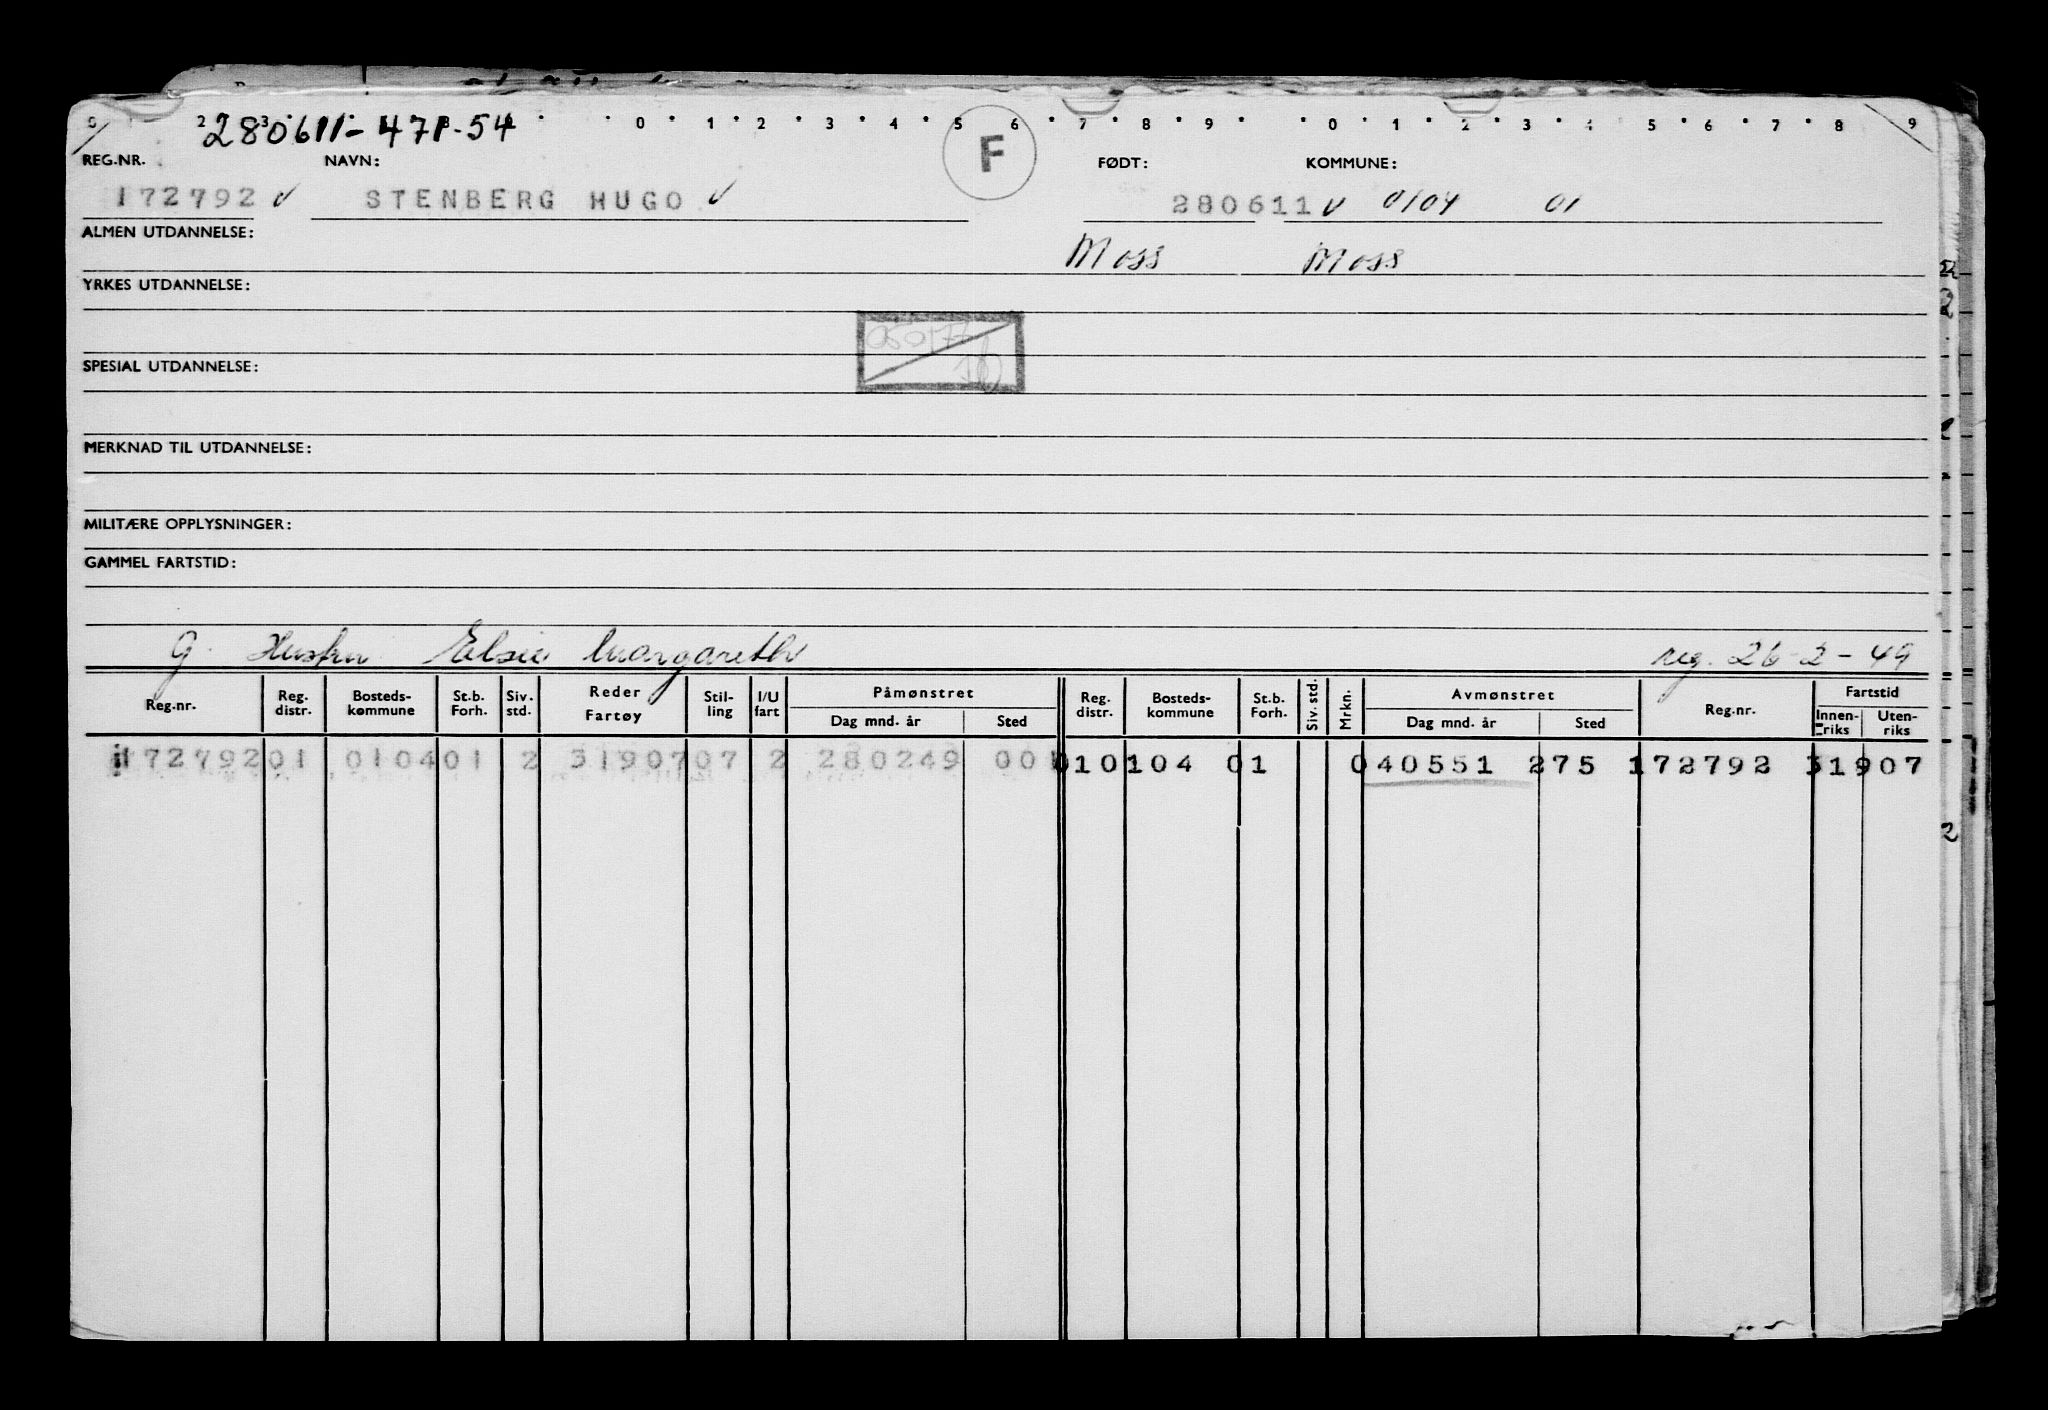 280611-471-54
0 1 2 3 4 5 6 7 8 9 0 1 2 3 4 5 6 7 8 9
F
REG.NR. NAVN: FØDT: KOMMUNE:
172792 STENBERG HUGO 280611 0104 01
ALMEN UTDANNELSE: Moss Moss
YRKES UTDANNELSE:
SPESIAL UTDANNELSE:
MERKNAD TIL UTDANNELSE:
MILITÆRE OPPLYSNINGER:
GAMMEL FARTSTID:
G. Hustru Elsie Margareth reg. 26-2-49
Reg.nr. Reg. distr. Bosteds-kommune St.b. Forh. Siv. std. Reder Fartøy Stil-ling I/U fart Påmønstret Dag mnd. år Sted Reg. distr. Bosteds-kommune St.b. Forh. Siv. std. Mrkn. Avmønstret Dag mnd. år Sted Reg.nr. Fartstid Innen-riks Uten-riks
172792 01 0104 01 2 31907 07 2 280249 00 010104 01 040551 275 172792 31907